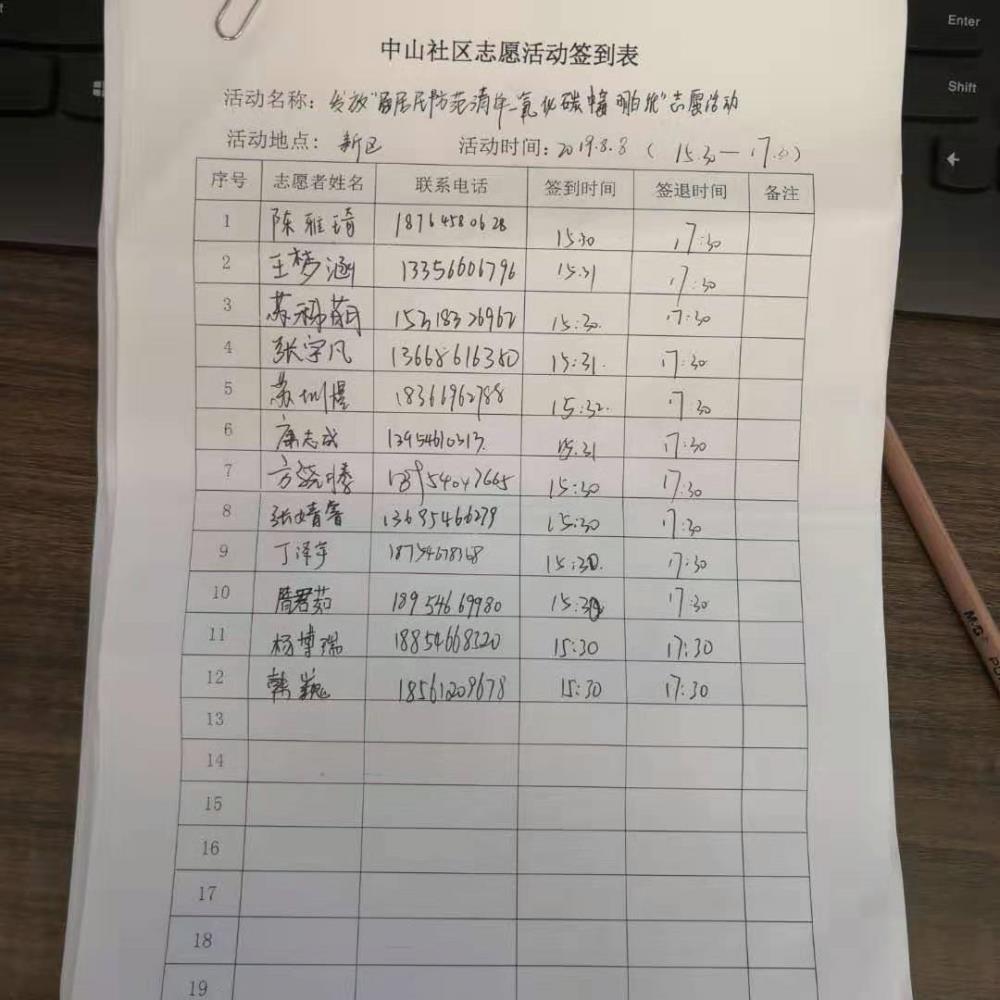 Enter
Shift
中山社区志愿活动签到表
活动名称: 发放"居民防范 一氧化碳中毒明白纸"志愿活动
活动地点: 新区 活动时间: 2019.8.8 (15.30—17.30)
序号 志愿者姓名 联系电话 签到时间 签退时间 备注
1 陈雅琦 18764580628 15:30 17:30
2 王梦涵 13356606796 15:31 17:30
3 苏 15318326962 15:30. 17:30
4 张宇凡 13668616380 15:31. 17:30
5 苏圳煜 18361962788 15:32. 17:30
6 康志成 13954610313. 15:31 17:30
7 方 17:30 15:30
8 张婧 13685466279 15:30 17:30
9 丁泽宇 15:30. 17:30
10 君茹 18954669980 15:30 17:30
11 杨博瑞 18854668320 15:30 17:30
12 韩巍 18561209678 15:30 17:30
13
14
15
16
17
18
19
M&G